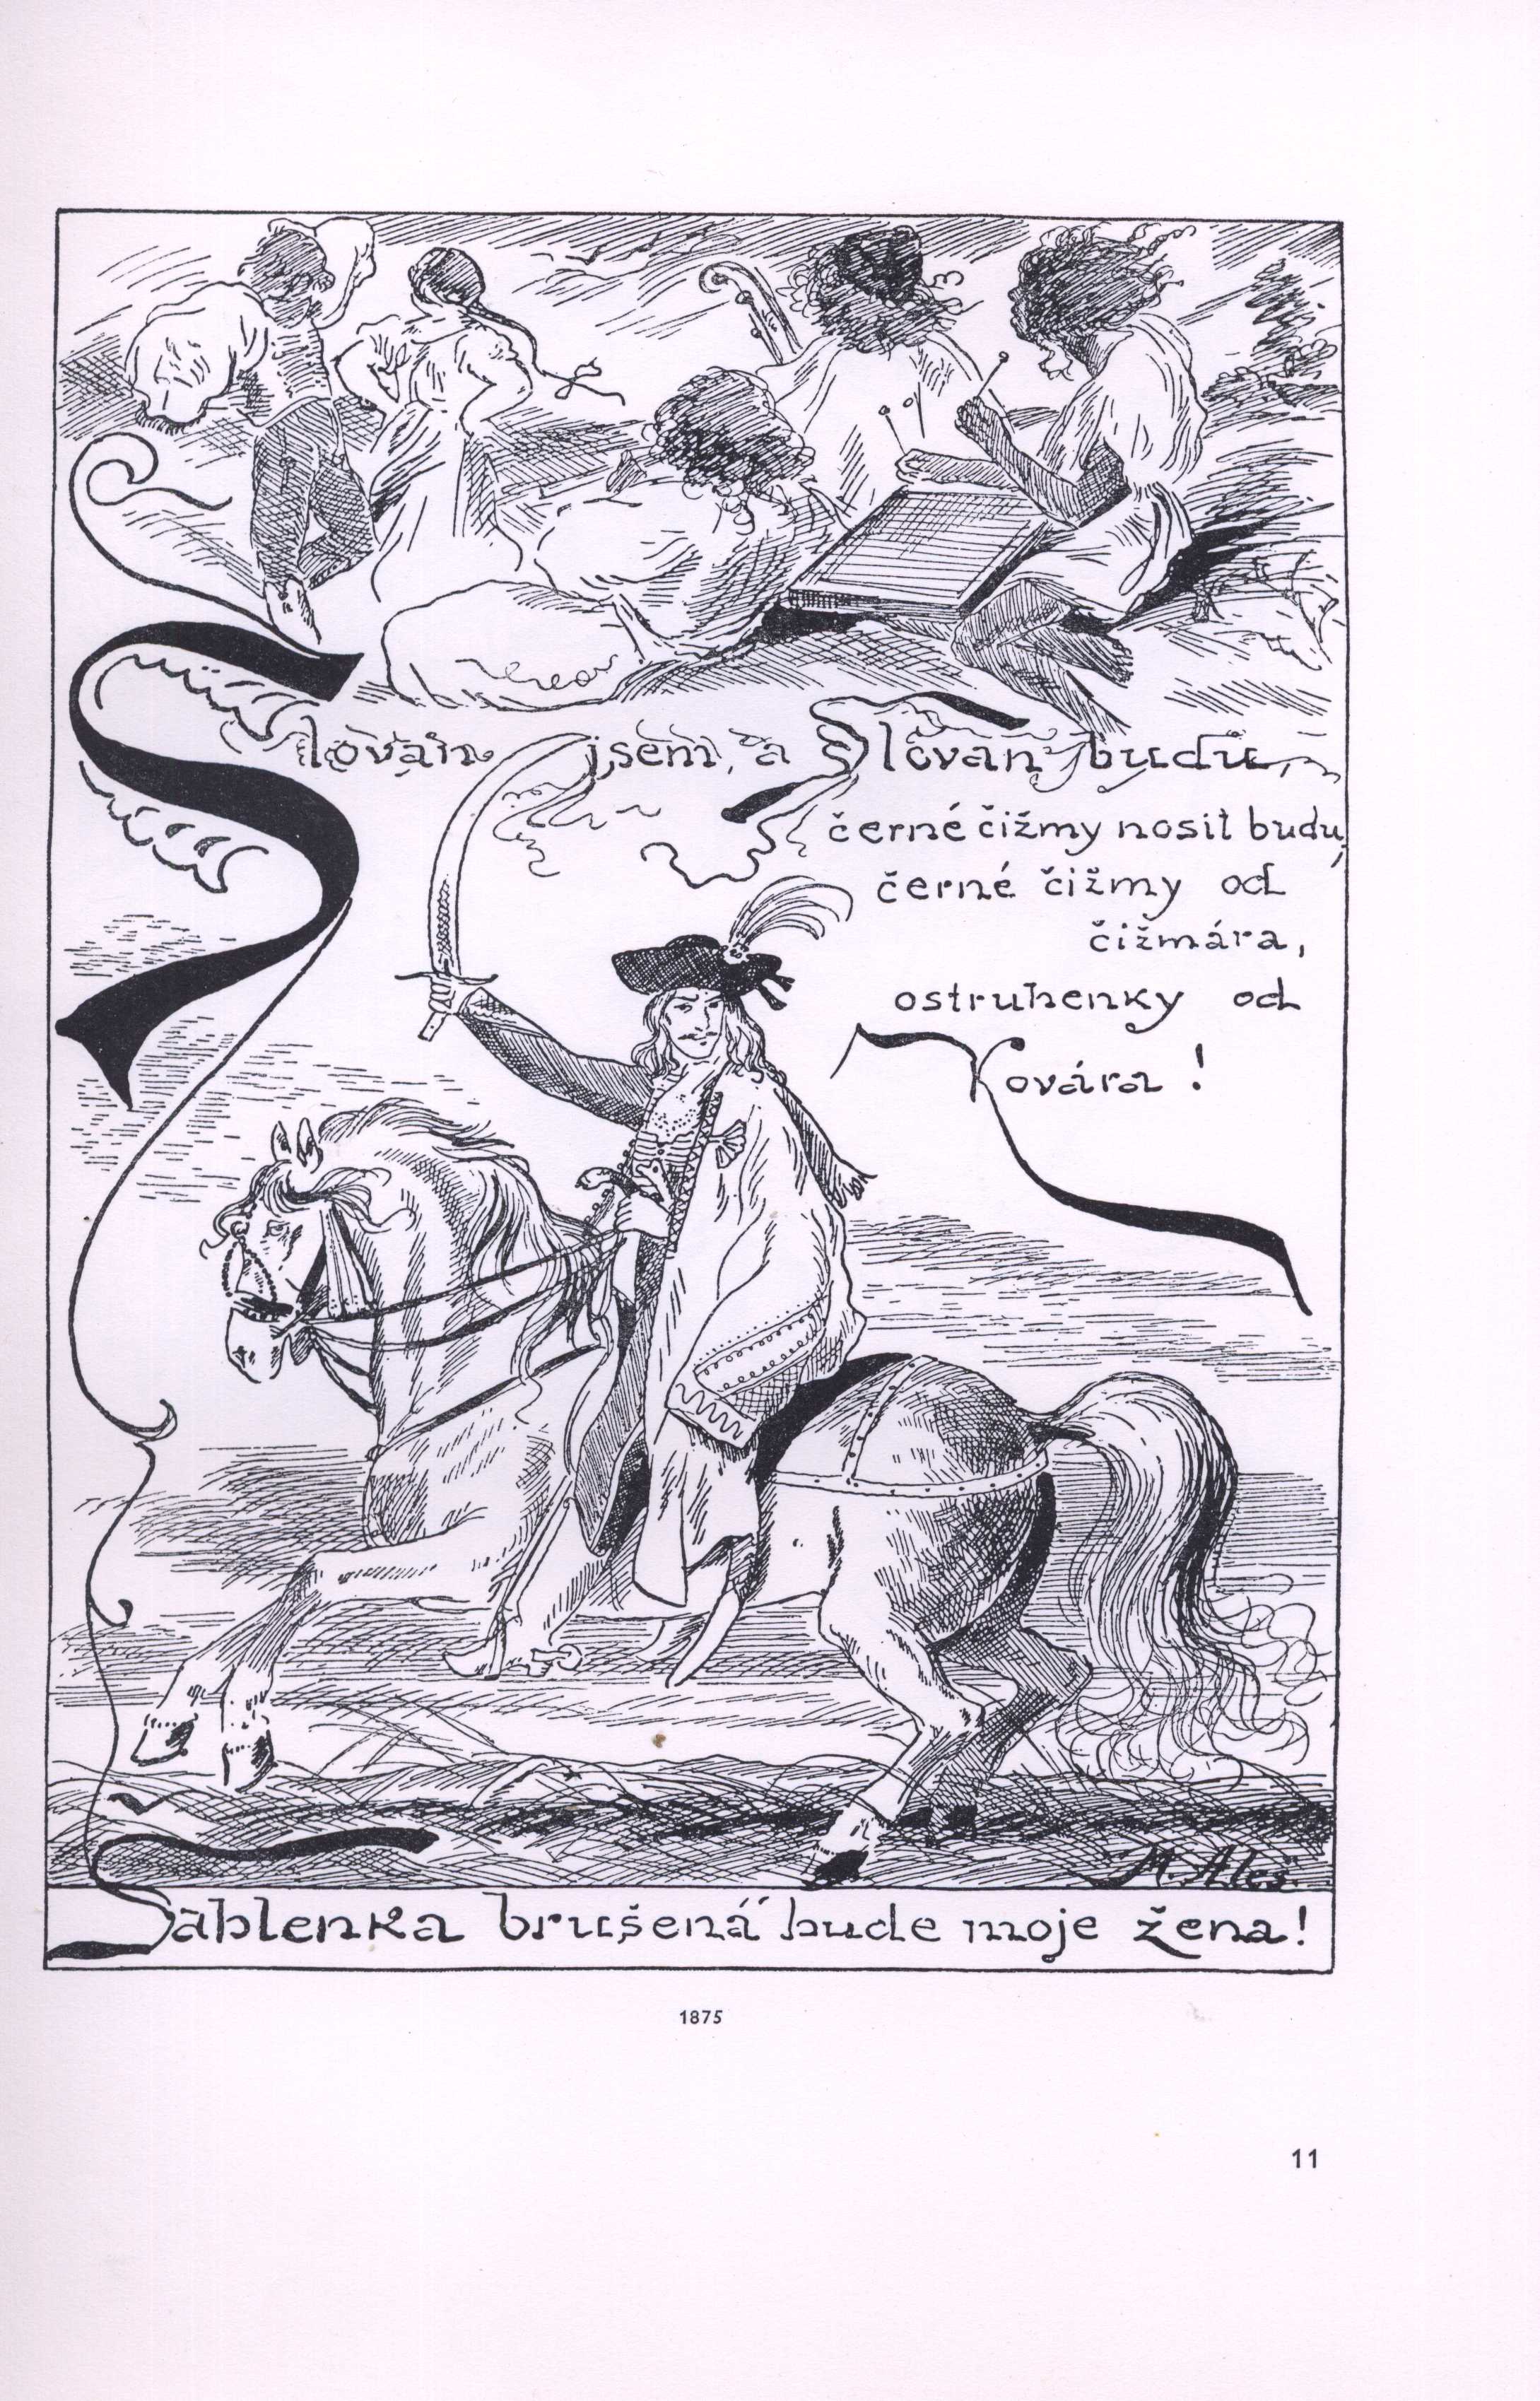 Slovan jsem, a Slovan budu,
černé čižmy nosit budu,
černé čižmy od
čižmára,
ostruhenky od
Kovára !
M. Aleš.
Šablenka brušená bude moje žena!
1875
11